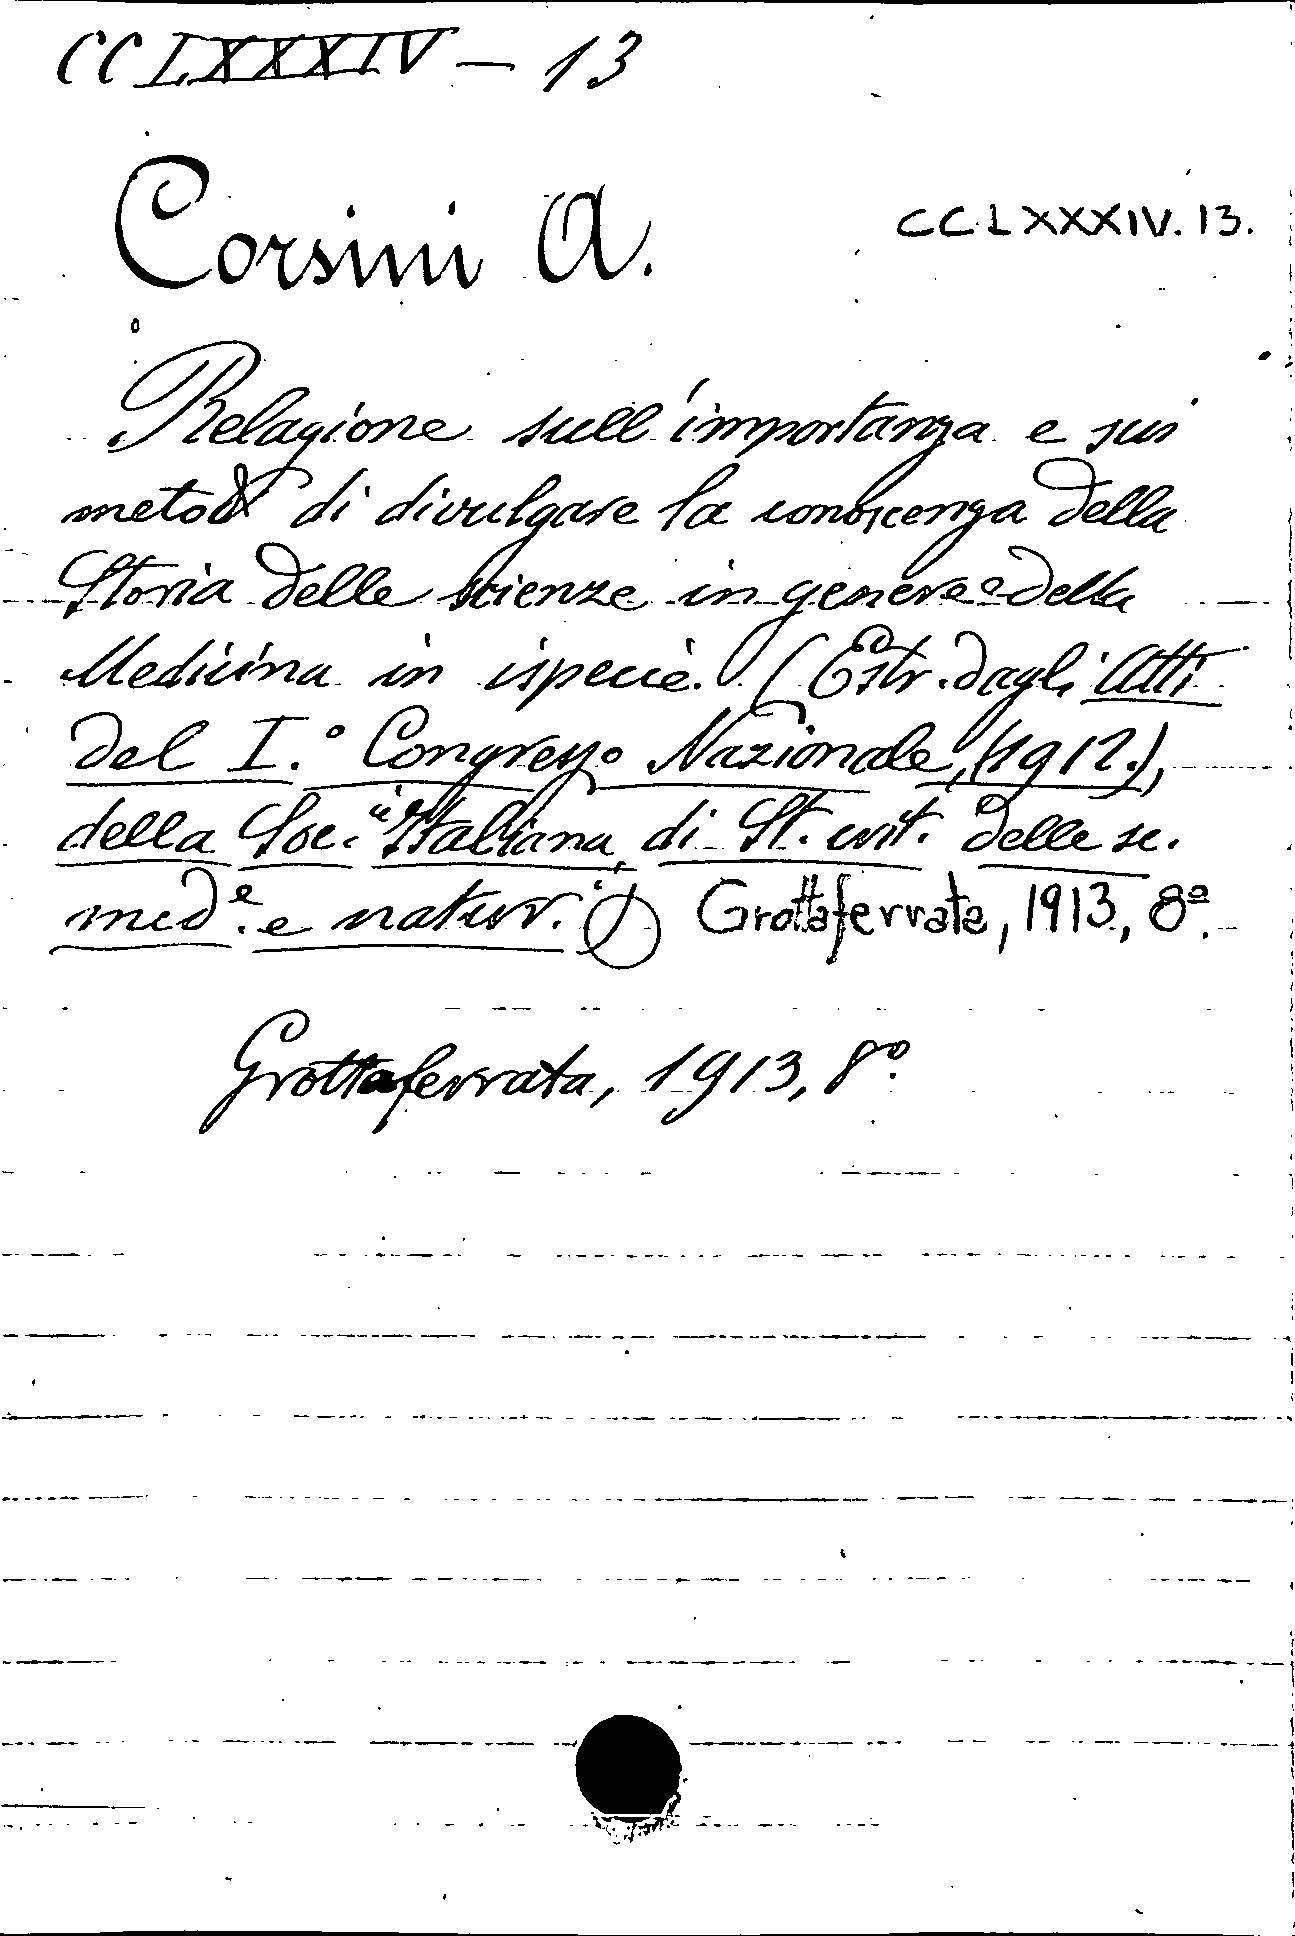 CCLXXXIV – 13
Corsini A.
CCLXXXIV. 13.
Relazione sull'importanza e sui
metodi di divulgare la conoscenza della
Storia delle scienze in genere e della
Medicina in ispecie. (Estr. dagli Atti
del I.° Congresso Nazionale, (1912.),
della Soc. Italiana di St. crit. delle sc.
med.e e natur.) Grottaferrata, 1913, 8º.
Grottaferrata, 1913, 8º.